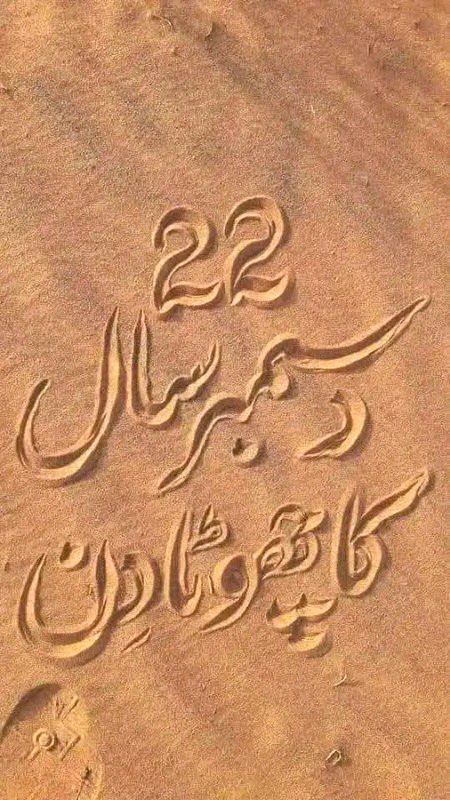 22
دسمبر سال
کا چھوٹا دِن